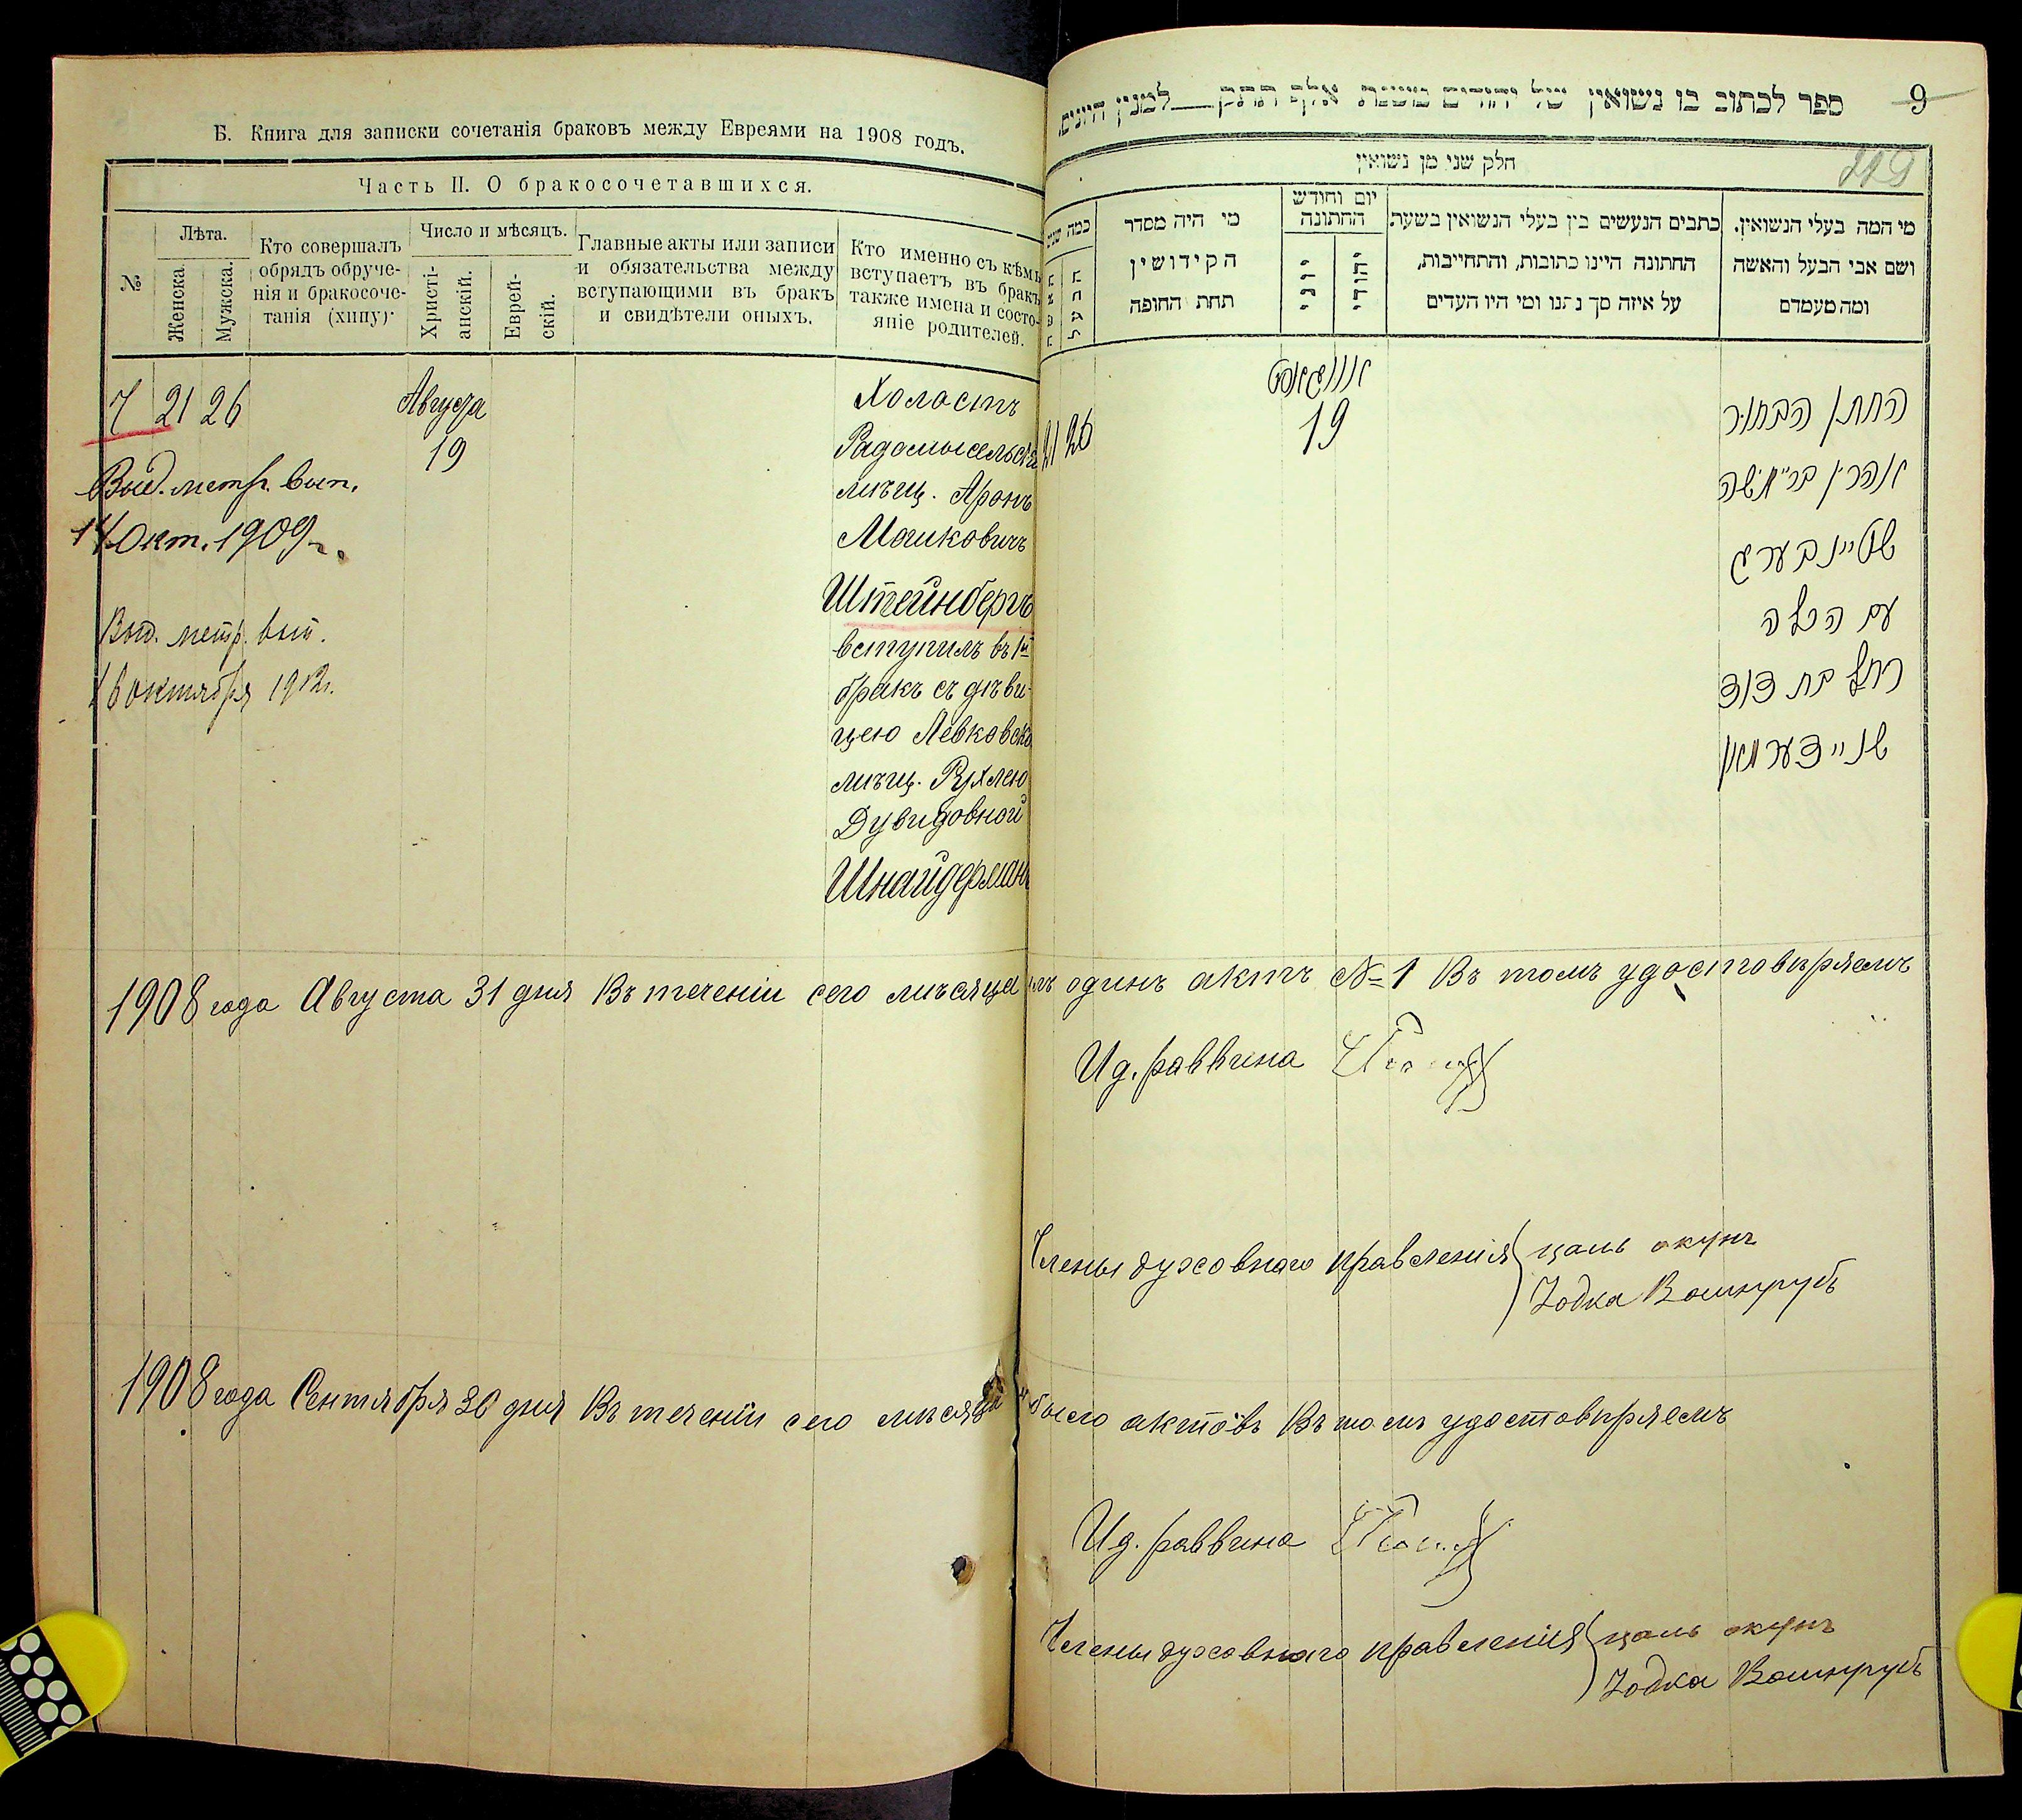 Б. Книга для записки сочетанія браковъ между Евреями на 1908 годъ.
Часть II. О бракосочетавшихся.
№
Лѣта.
Женска.
Мужска.
Кто совершалъ
обрядъ обруче-
нія и бракосоче-
танія (хипу)·
Число и мѣсяцъ.
Христі-
анскій.
Еврей-
скій.
Главные акты или записи
и обязательства между
вступающими въ бракъ
и свидѣтели оныхъ.
Кто именно съ кѣмъ
вступаетъ въ бракъ
также имена и состо-
яніе родителей.
7 21 26
Августа
19
Выд. метр. вып.
14 Окт. 1909 г.
Выд. метр. вып.
16 октября 1912г.
Холостъ
Радомысльскій
мѣщ. Аронъ
Мошковичъ
Штейнбергъ
вступилъ въ 1й
бракъ съ дѣви-
цею Левковск.
мѣщ. Рухлею
Дувидовной
Шнайдерманъ
1908 года Августа 31 дня Въ теченіи сего мѣсяца
1908 года Сентября 30 дня Въ теченіи сего мѣсяца
ספר לכתוב בו נשואין של יהודים משנת אלף תתק — למנין היונים.
9
119
חלק שני מן נשואין
מי המה בעלי הנשואין.
ושם אבי הבעל והאשה
ומה מעמדם
כתבים הנעשים בין בעלי הנשואין בשעת
החתונה היינו כתובות, והתחייבות,
על איזה סך נתנו ומי היו העדים
יום וחודש
החתונה
יהודי
יוני
מי היה מסדר
הקידושין
תחת החופה
כמה שנים
הבעל
האשה
21 26
אווגוסט
19
החתן הבחור
אהרן בר"משה
שטיינבערג
עם הכלה
רחל בת דוד
שניידערמאן
одинъ актъ № 1 Въ томъ удостовѣряемъ
И д. раввина
Члены духовнаго правленія
цаль окунъ
Іодка
было актовъ Въ томъ удостовѣряемъ
И д. раввина
Члены духовнаго правленія
цаль окунъ
Іодка